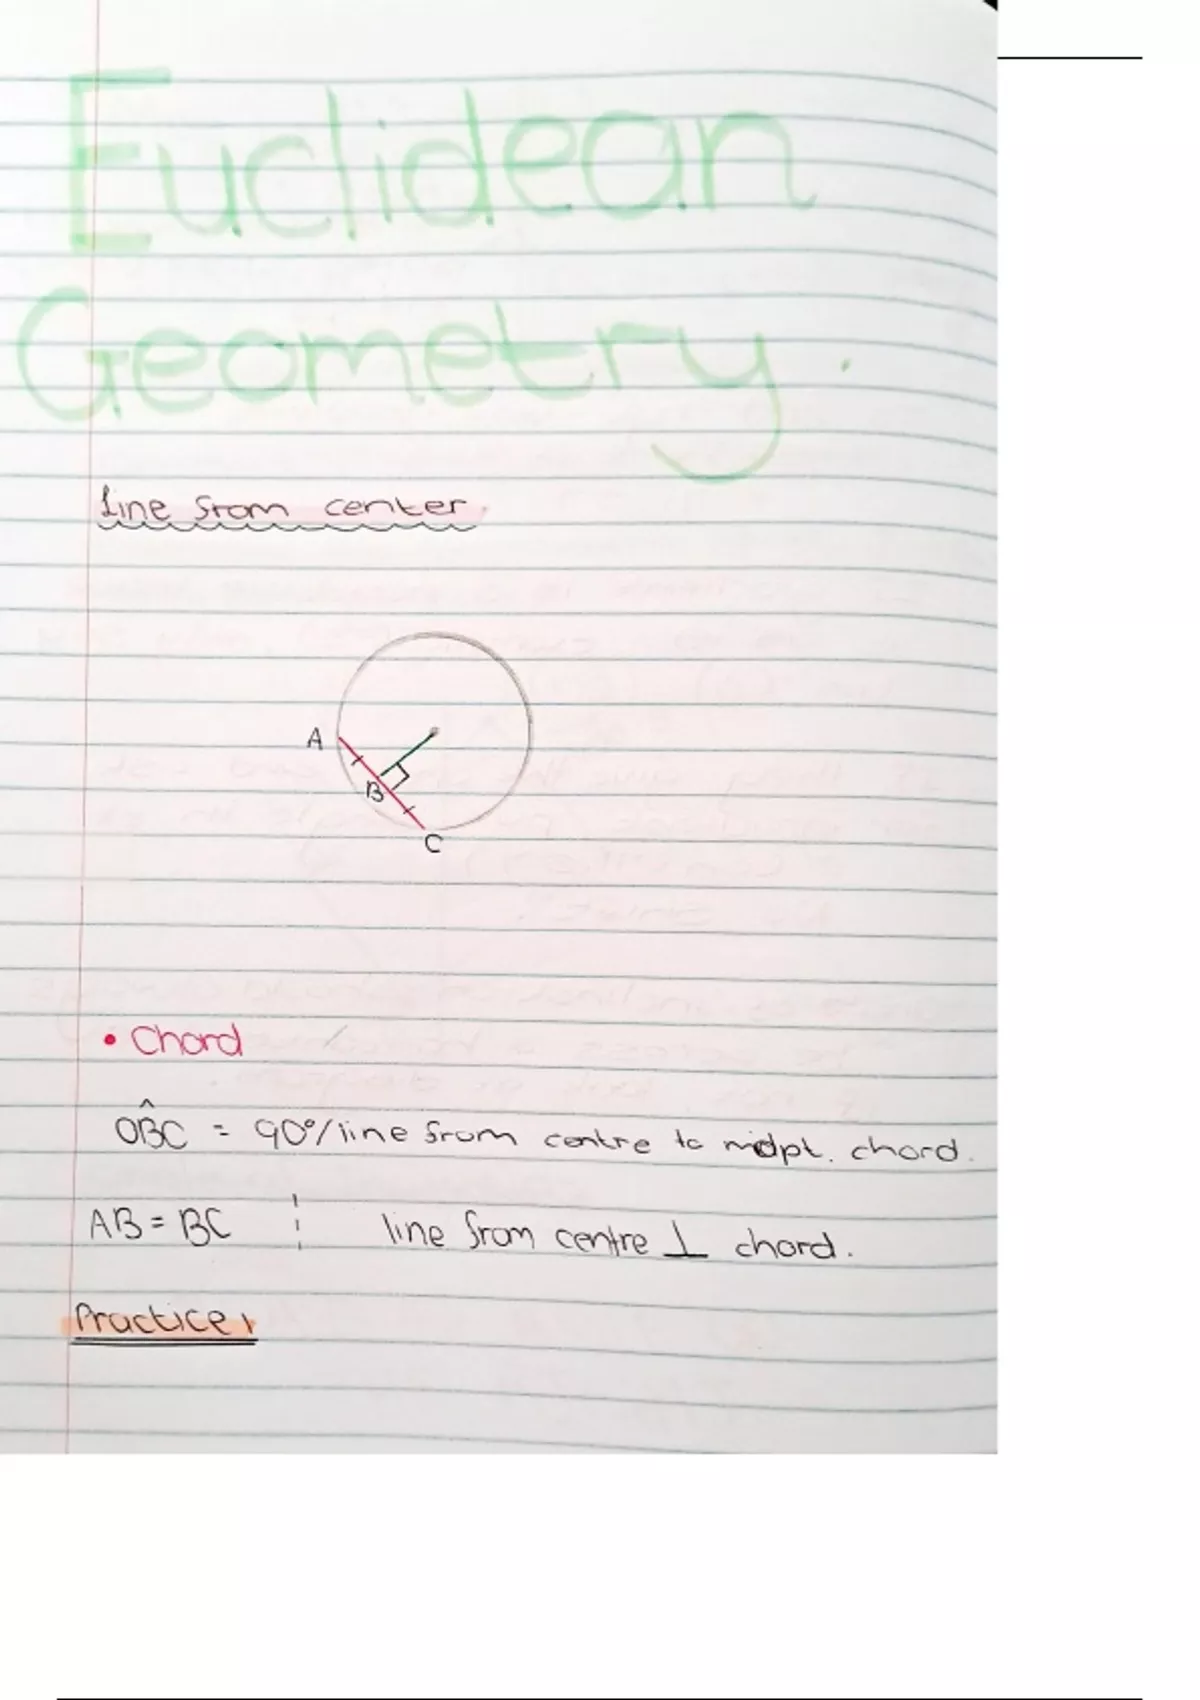 Euclidean
Geometry.
Line from center.
A
B
C
• Chord
OB̂C = 90°/line from centre to midpt. chord.
AB = BC ¦ line from centre ⊥ chord.
Practice